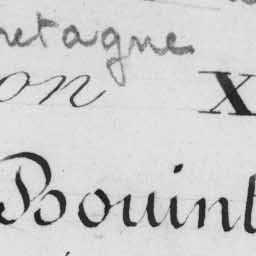 retagne
on X
Bouinl